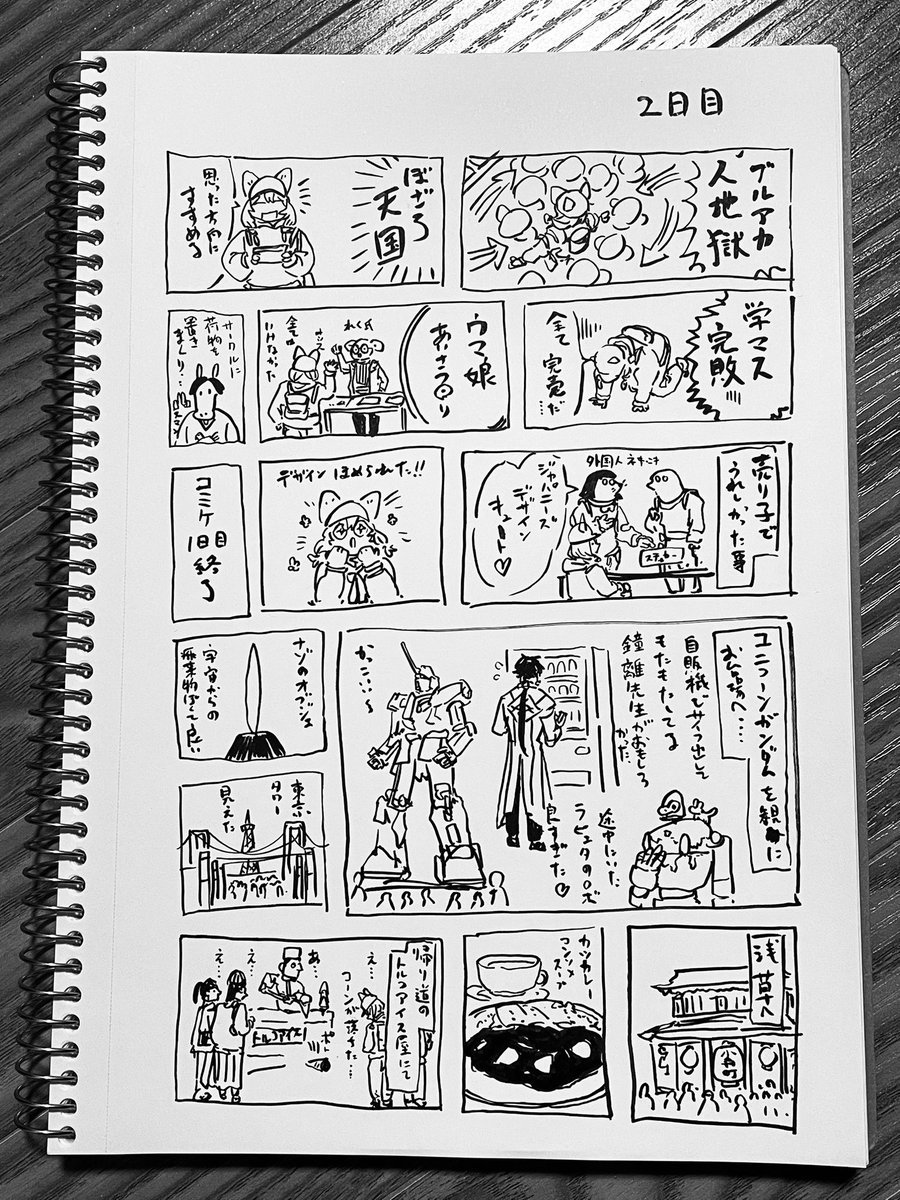 2日目
ブルアカ
人地獄
ぼざろ
天国
思った方向に
すすめる
学マス
完敗
全て完売だ…
ウマ娘
あいさつ回り
れく式
全ては
いけなかった
サークルに
荷物を
置き
まくり…
売り子で
うれしかった事
外国人ネキニキ
ジャパニーズ
デザイン
キュート♡
ステッカー
デザインほめられた!!
コミケ
1日目
終了
ユニコーンガンダムを観に
お台場へ…
自販機でサイフ出して
もたもたしてる
鐘離先生がおもしろ
かた。
途中にいた
ラピュタのロボ
良すぎた♡
かっこいい〜
ナゾのオブジェ
宇宙からの
飛来物ぽくて良い
東京
タワー
見えた
浅草へ
小舟町
カツカレー
コンソメ
スープ
帰り道の
トルコアイス屋にて
コーンが落ちた…
え…
あ…
ポト
え…
え…
トルコアイス